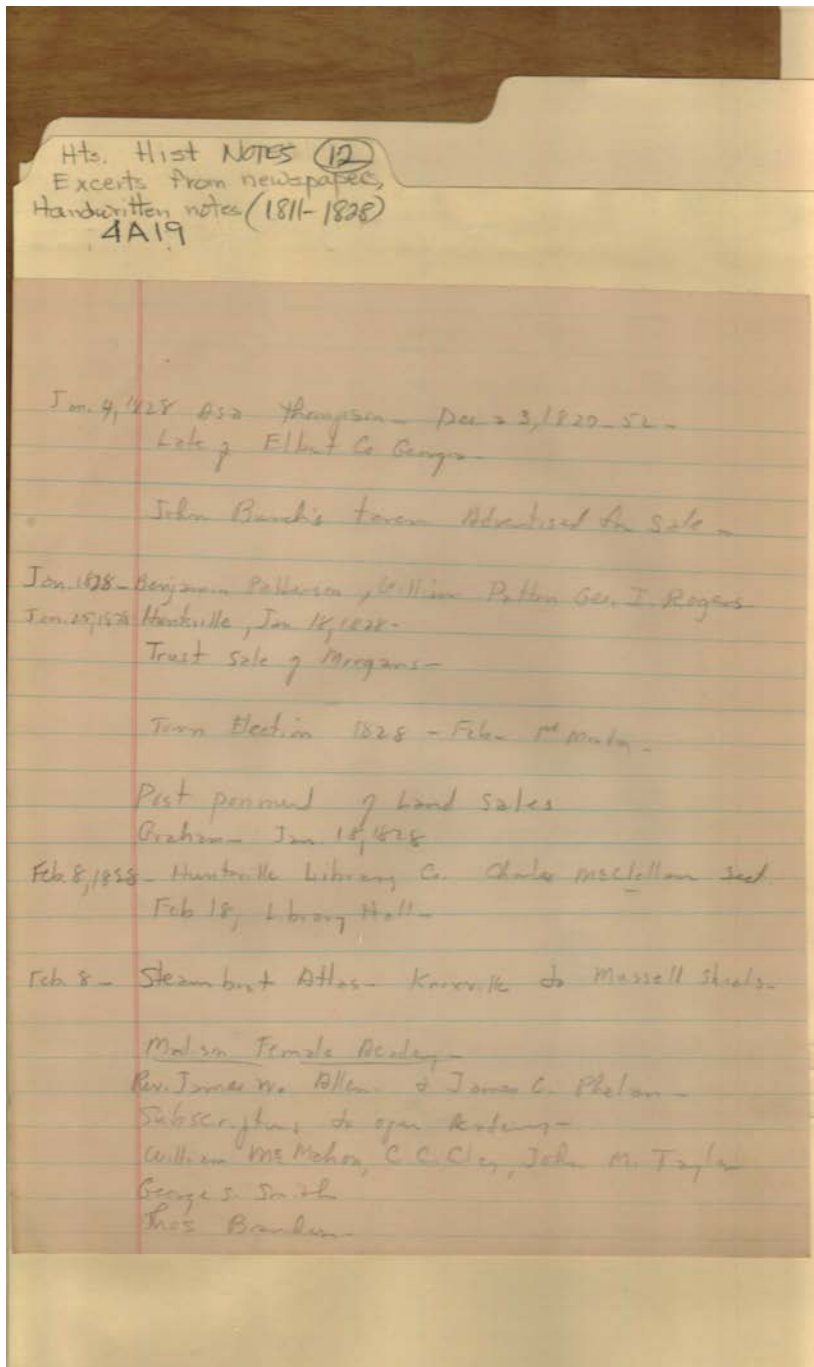 Hts. Hist NOTES (12)
Excerts from newspapers,
Handwritten notes (1811-1828)
4A19
Jan. 4, 1828 Asa Thompson - Dec 23, 1820 - 52 -
Late of Elbert Co Georgia -
John Bunch's tavern Advertised for Sale -
Jan. 1828 - Benjamin Patterson, William Patton Geo. I. Rogers
Jan. 25, 1828 Huntsville, Jan 18, 1828 -
Trust Sale of Morgans -
Town Election 1828 - Feb - 1st
Post of Land Sales
Graham - Jan. 18, 1828
Feb. 8, 1828 - Huntsville Library Co. Charles McClellan Sect.
Feb 18, Library Hall -
Feb. 8 - Steam boat Atlas - Knoxville to Mussell Shoals -
Madison Female Academy -
Rev. James W. Allen & James C. Phelan -
Subscriptions to open Academy -
William McMahon, C C. Clay, John M. Taylor
George S. Smith
Thos Brandon -